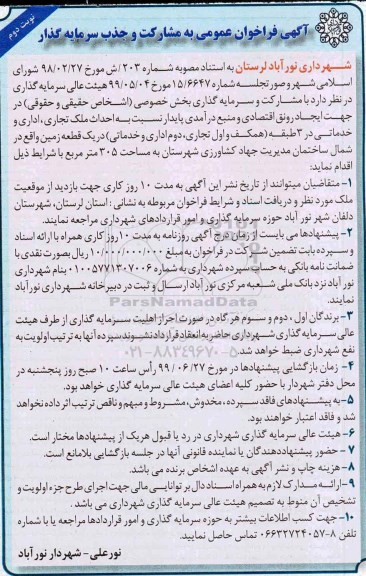 نوبت دوم
آگهی فراخوان عمومی به مشارکت و جذب سرمایه گذار
شهرداری نورآباد لرستان به استناد مصوبه شماره ۲۰۳/ش مورخ ۹۸/۰۲/۲۷ شورای
اسلامی شهر و صورتجلسه شماره ۱۵/۶۶۴۷ مورخ ۹۹/۰۵/۰۴ هیئت عالی سرمایه گذاری
در نظر دارد با مشارکت و سرمایه گذاری بخش خصوصی (اشخاص حقیقی و حقوقی) در
جهت ایجاد رونق اقتصادی و منبع درآمدی پایدار نسبت به احداث ملک تجاری، اداری و
خدماتی در ۳طبقه (همکف و اول تجاری، دوم اداری و خدماتی) در یک قطعه زمین واقع در
شمال ساختمان مدیریت جهاد کشاورزی شهرستان به مساحت ۳۰۵ متر مربع با شرایط ذیل
اقدام نماید:
۱- متقاضیان میتوانند از تاریخ نشر این آگهی به مدت ۱۰ روز کاری جهت بازدید از موقعیت
ملک مورد نظر و دریافت اسناد و شرایط فراخوان مربوطه به نشانی : استان لرستان، شهرستان
دلفان شهر نور آباد حوزه سرمایه گذاری و امور قراردادهای شهرداری مراجعه نمایند.
۲- پیشنهادها می بایست از زمان درج آگهی روزنامه به مدت ۱۰روز کاری همراه با ارائه اسناد
و سپرده بابت تضمین شرکت در فراخوان به مبلغ ۱۰/۰۰۰/۰۰۰/۰۰۰ ریال بصورت نقدی یا
ضمانت نامه بانکی به حساب سپرده شهرداری به شماره ۰۱۰۰۵۷۷۱۳۰۷۰۰۶ بنام شهرداری
نور آباد نزد بانک ملی شعبه مرکزی نور آباد ارسال و ثبت در دبیرخانه شهرداری نورآباد
نمایند.
۳- برندگان اول ، دوم و سوم هر گاه در صورت احراز اهلیت سرمایه گذاری از طرف هیئت
عالی سرمایه گذاری شهرداری حاضر به انعقاد قرارداد نشوند سپرده آنها به ترتیب اولویت به
نفع شهرداری ضبط خواهد شد.
۴- زمان بازگشایی پیشنهادها در مورخ ۹۹/۰۶/۲۷ رأس ساعت ۱۰ صبح روز پنجشنبه در
محل دفتر شهردار با حضور کلیه اعضای هیئت عالی سرمایه گذاری خواهد بود.
۵- به پیشنهادهای فاقد سپرده ، مخدوش، مشروط و مبهم و ناقص ترتیب اثر داده نخواهد
شد و فاقد اعتبار خواهند بود.
۶- هیئت عالی سرمایه گذاری شهرداری در رد یا قبول هریک از پیشنهادها مختار است.
۷- حضور پیشنهاددهندگان یا نماینده قانونی آنها در جلسه بازگشایی بلامانع است.
۸- هزینه چاپ و نشر آگهی به عهده اشخاص برنده می باشد.
۹- ارائه مدارک لازم به همراه اسناد دال بر توانایی مالی جهت اجرای طرح جزء اولویت و
تشخیص آن منوط به تصمیم هیئت عالی سرمایه گذاری شهرداری می باشد.
۱۰- جهت کسب اطلاعات بیشتر به حوزه سرمایه گذاری و امور قراردادها مراجعه یا با شماره
تلفن ۸-۰۶۶۳۲۷۲۴۰۵۷ تماس حاصل نمایید.
نورعلی- شهردار نورآباد
ParsNamadData
۰۲۱-۸۸۳۴۹۶۷۰-۵